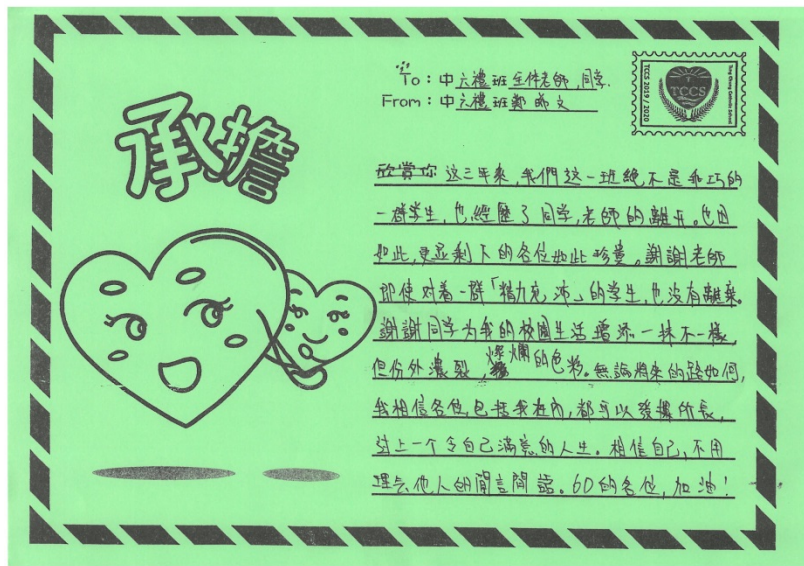 承擔
To：中六禮班全体老師,同学.
From：中六禮班鄭 文
TCCS 2019 / 2020
Tung Chung Catholic School
TCCS
欣賞你 这三年来,我們这一班絕不是乖巧的
一群学生,也經歷了同学,老師的離开。也因
如此,更显剩下的各位如此珍貴。謝謝老師
即使对着一群「精力充沛」的学生,也没有離棄。
謝謝同学为我的校園生活增添一抹不一樣,
但份外濃裂,燦爛的色彩。無論將来的路如何,
我相信各位,包括我在內,都可以發揮所長,
踏上一个令自己滿意的人生。相信自己,不用
理会他人的閒言閒語。6D的各位,加油!